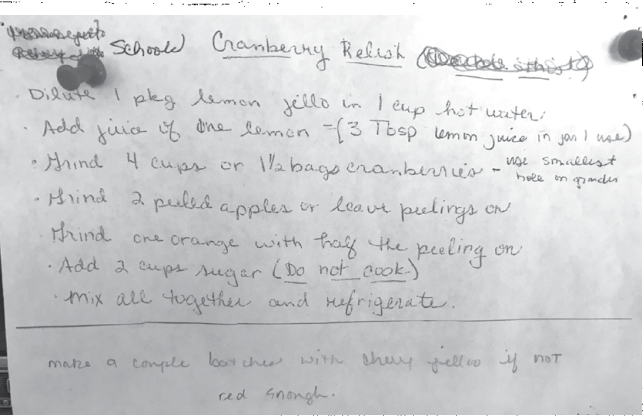 School Cranberry Relish
· Dilute 1 pkg lemon jello in 1 cup hot water.
· Add juice of one lemon - (3 Tbsp lemon juice in jar I use)
· Grind 4 cups or 1½ bags cranberries - use smallest
hole on grinder
· Grind 2 peeled apples or leave peelings on
Grind one orange with half the peeling on
· Add 2 cups sugar (Do not cook.)
· Mix all together and refrigerate.
make a couple batches with cherry jello if not
red enough.